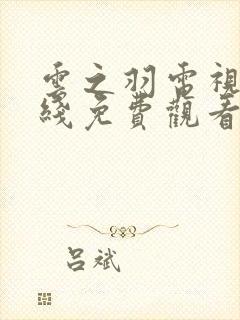 雲之羽電視
綫免費觀看
呂斌